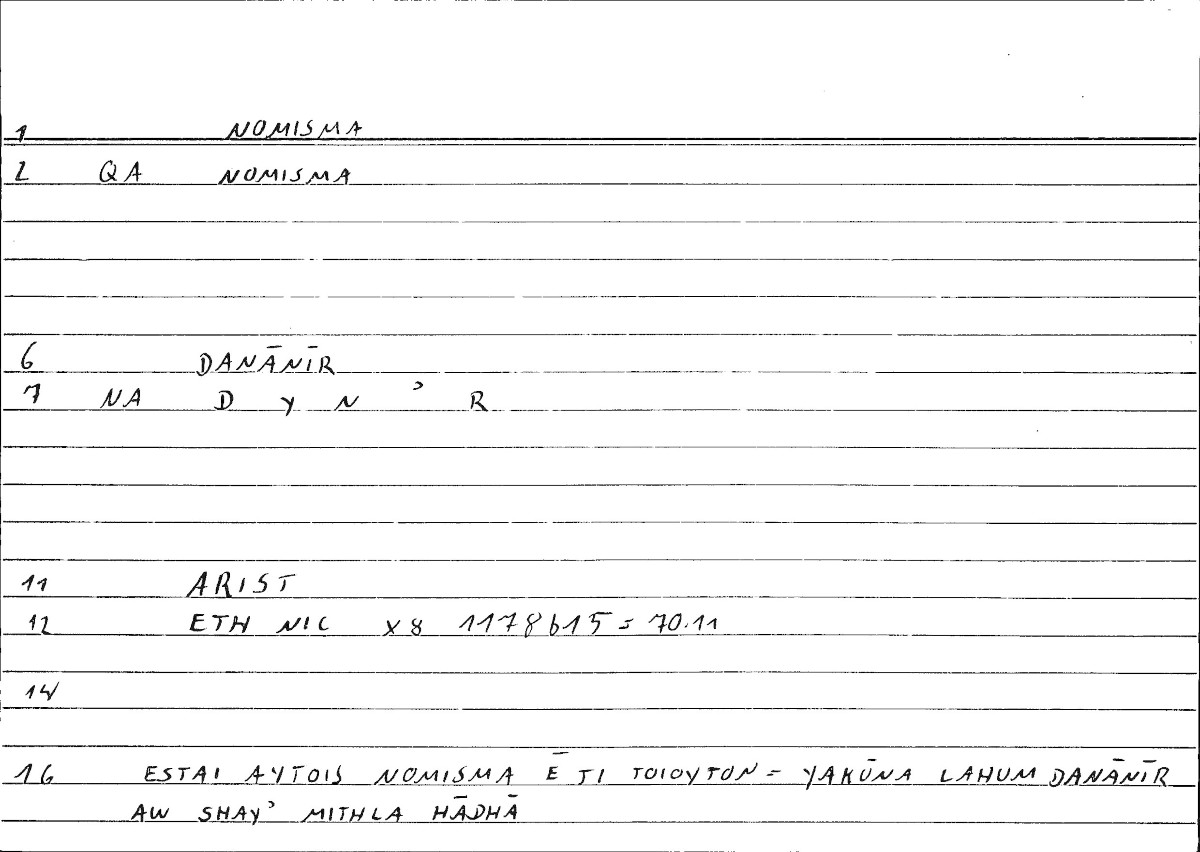 1 NOMISMA
2 QA NOMISMA
6 DANĀNĪR
7 NA D Y N ʾ R
11 ARIST
12 ETH NIC X8 1178b15 = 70.11
14
16 ESTAI AYTOIS NOMISMA Ē TI TOIOYTON = YAKŪNA LAHUM DANĀNĪR
AW SHAYʾ MITHLA HĀDHĀ